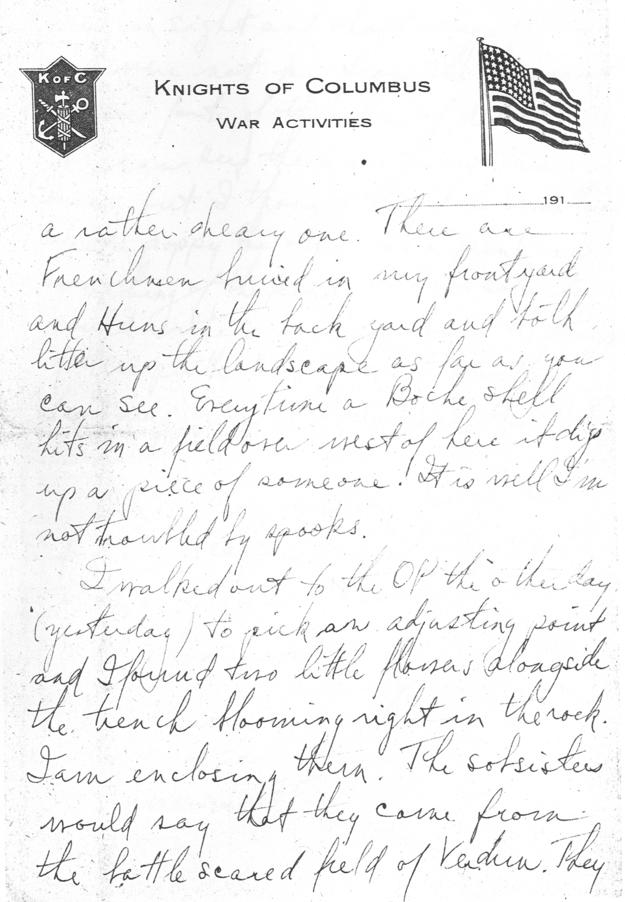 K OF C
KNIGHTS OF COLUMBUS
WAR ACTIVITIES
191
a rather dreary one. There are
Frenchmen buried in my front yard
and Huns in the back yard and both
litter up the landscape as far as you
can see. Everytime a Boche shell
hits in a field over west of here it digs
up a piece of someone. It is well I'm
not troubled by spooks.
I walked out to the OP the other day
(yesterday) to pick an adjusting point
and I found two little flowers alongside
the trench blooming right in the rock.
I am enclosing them. The sobsisters
would say that they came from
the battle scared field of Verdun. They